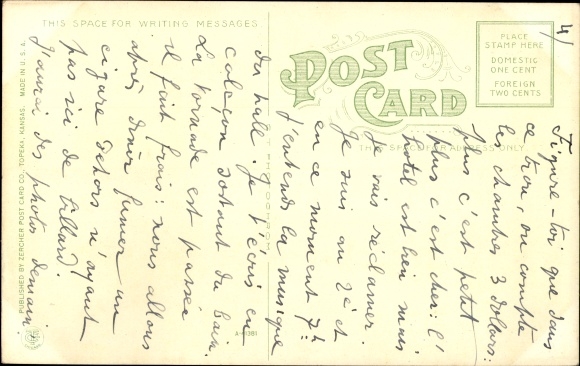 THIS SPACE FOR WRITING MESSAGES
POST CARD
PLACE
STAMP HERE
DOMESTIC
ONE CENT
FOREIGN
TWO CENTS
THIS SPACE FOR ADDRESS ONLY
PUBLISHED BY ZERCHER POST CARD CO., TOPEKA, KANSAS. MADE IN U.S.A.
PHOTOCHROM
4/
Figure-toi que dans
ce trou, on compte
les chambres 3 dollars:
plus c'est petit
plus c'est cher: l'
hotel est bien mais
je vais réclamer.
Je suis au 2é et
en ce moment 7h
j'entends la musique
du hall. Je t'écris en
caleçon sortant du bain.
La tornade est passée
il fait frais: nous allons
après diner fumer un
cigare dehors n'ayant
pas ici de billard.
J'aurai des photos demain.